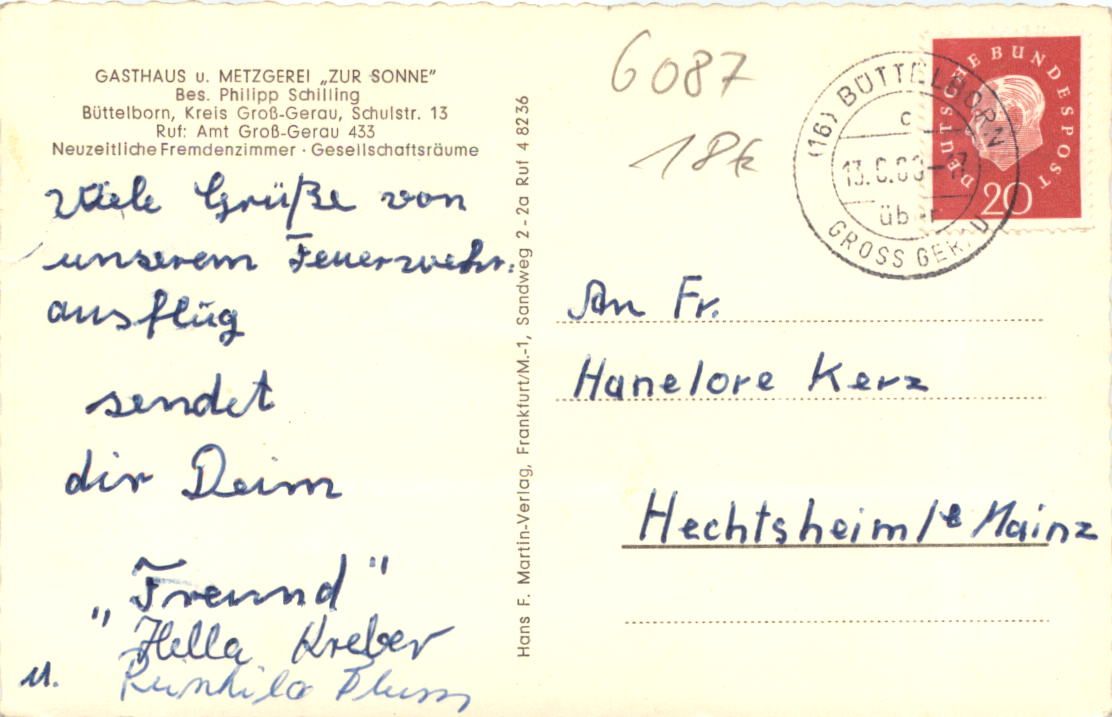 GASTHAUS u. METZGEREI „ZUR SONNE"
Bes. Philipp Schilling
Büttelborn, Kreis Groß-Gerau, Schulstr. 13
Ruf: Amt Groß-Gerau 433
Neuzeitliche Fremdenzimmer · Gesellschaftsräume
Viele Grüße von
unserem Feuerwehr:
ausflüg
sendet
dir Deim
„Freund"
Hella Kreber
u. Reinhila
Hans F. Martin-Verlag, Frankfurt/M.-1, Sandweg 2-2a Ruf 4 82 36
6087
18
DEUTSCHE BUNDESPOST
20
(16) BÜTTELBORN
c
über
GROSS GERAU
An Fr.
Hanelore Kerz
Hechtsheim/ Mainz